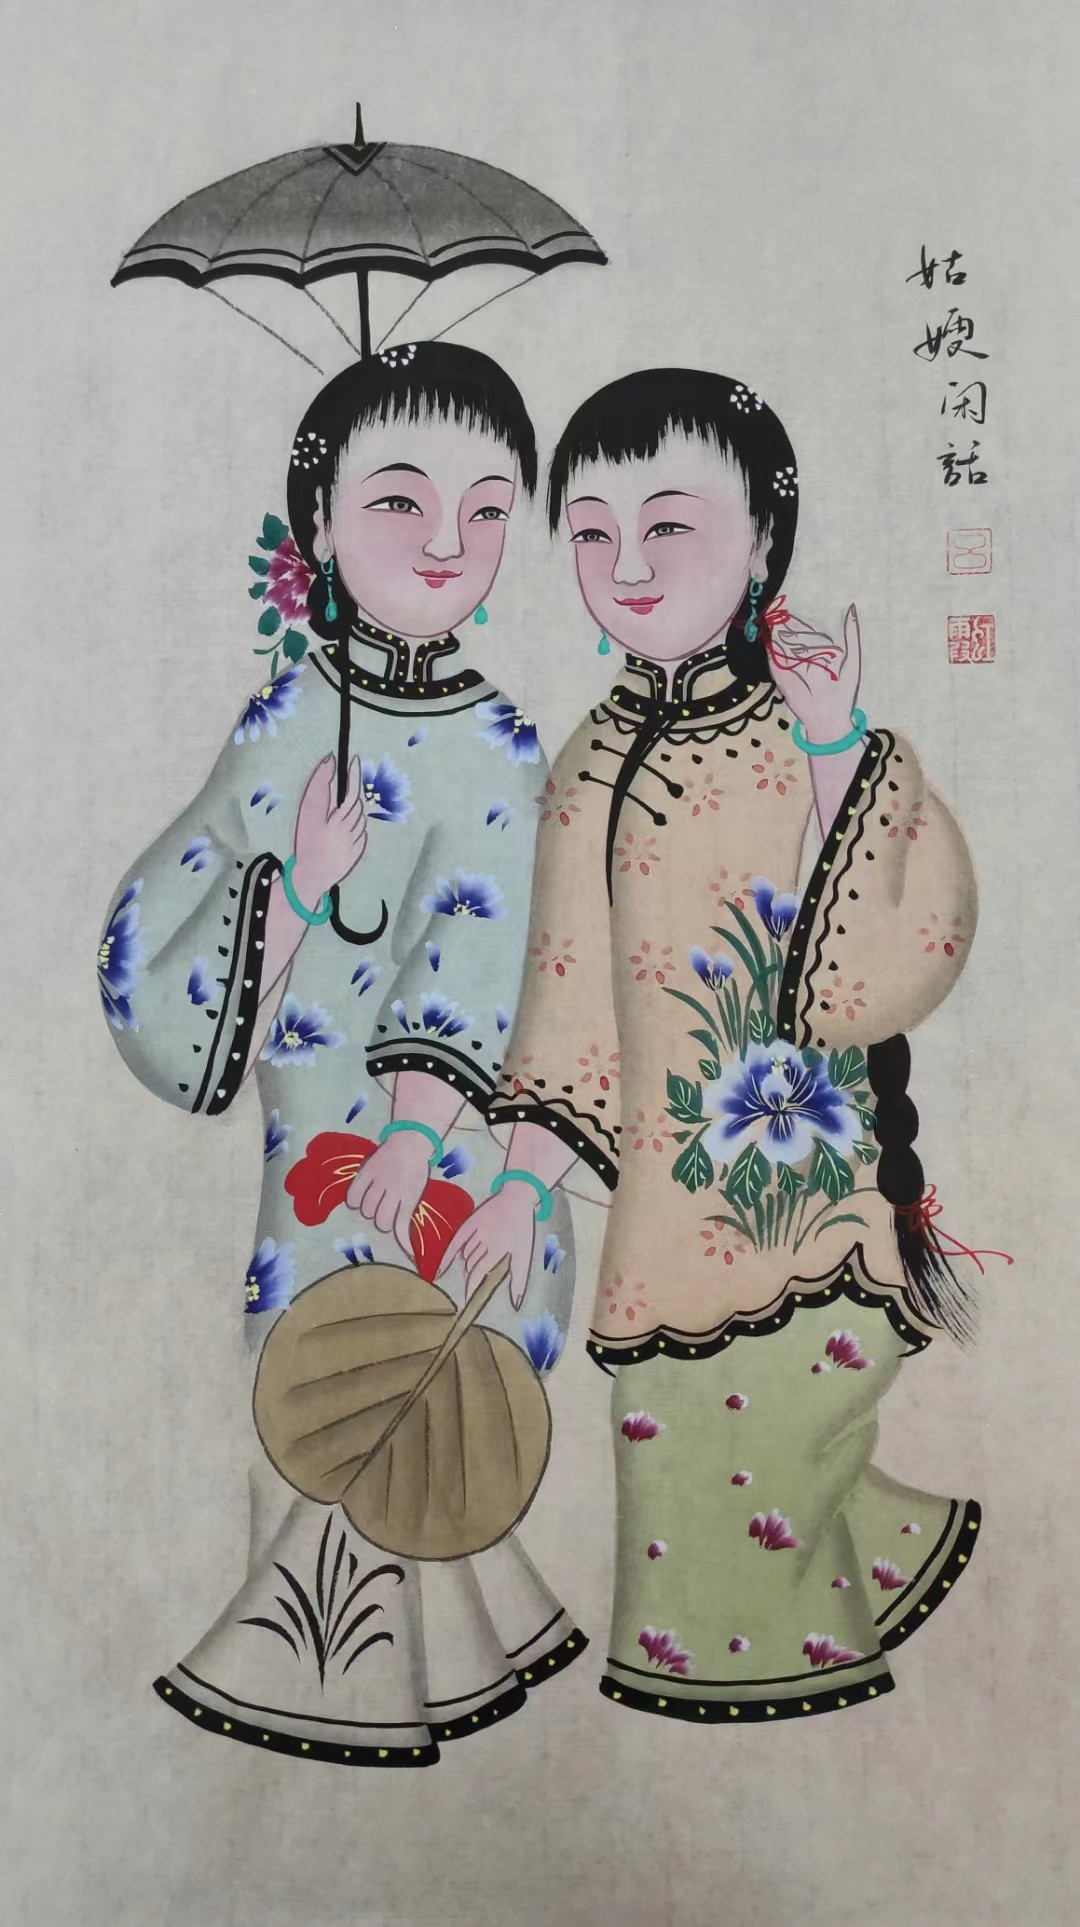 姑嫂闲話
吕